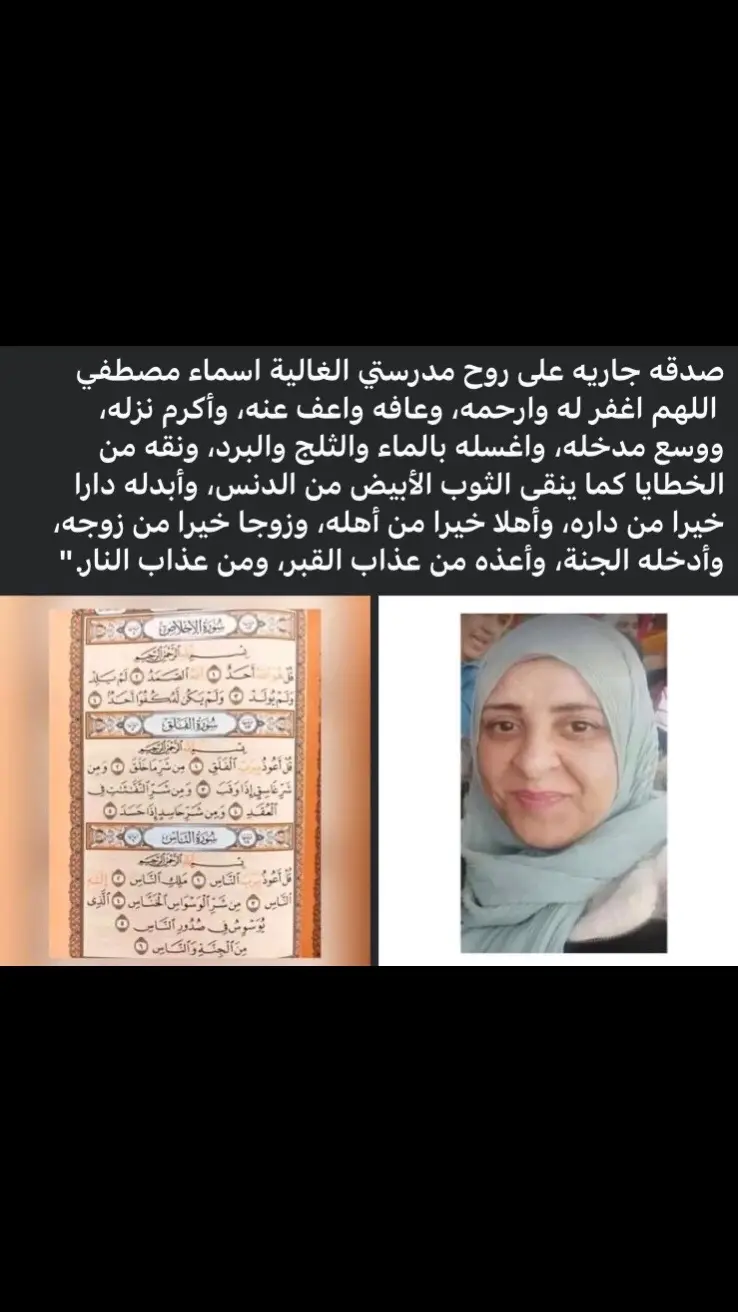 صدقه جاريه على روح مدرستي الغالية اسماء مصطفي
اللهم اغفر له وارحمه، وعافه واعف عنه، وأكرم نزله،
ووسع مدخله، واغسله بالماء والثلج والبرد، ونقه من
الخطايا كما ينقى الثوب الأبيض من الدنس، وأبدله دارا
خيرا من داره، وأهلا خيرا من أهله، وزوجا خيرا من زوجه،
وأدخله الجنة، وأعذه من عذاب القبر، ومن عذاب النار."
سُورَةُ الإِخْلَاصِ
بِسْمِ اللَّهِ الرَّحْمَٰنِ الرَّحِيمِ
قُلْ هُوَ اللَّهُ أَحَدٌ ١ اللَّهُ الصَّمَدُ ٢ لَمْ يَلِدْ
وَلَمْ يُولَدْ ٣ وَلَمْ يَكُن لَّهُ كُفُوًا أَحَدٌ ٤
سُورَةُ الفَلَقِ
بِسْمِ اللَّهِ الرَّحْمَٰنِ الرَّحِيمِ
قُلْ أَعُوذُ بِرَبِّ الْفَلَقِ ١ مِن شَرِّ مَا خَلَقَ ٢ وَمِن
شَرِّ غَاسِقٍ إِذَا وَقَبَ ٣ وَمِن شَرِّ النَّفَّٰثَٰتِ فِي
الْعُقَدِ ٤ وَمِن شَرِّ حَاسِدٍ إِذَا حَسَدَ ٥
سُورَةُ النَّاسِ
بِسْمِ اللَّهِ الرَّحْمَٰنِ الرَّحِيمِ
قُلْ أَعُوذُ بِرَبِّ النَّاسِ ١ مَلِكِ النَّاسِ ٢ إِلَٰهِ
النَّاسِ ٣ مِن شَرِّ الْوَسْوَاسِ الْخَنَّاسِ ٤ الَّذِي
يُوَسْوِسُ فِي صُدُورِ النَّاسِ ٥
مِنَ الْجِنَّةِ وَالنَّاسِ ٦